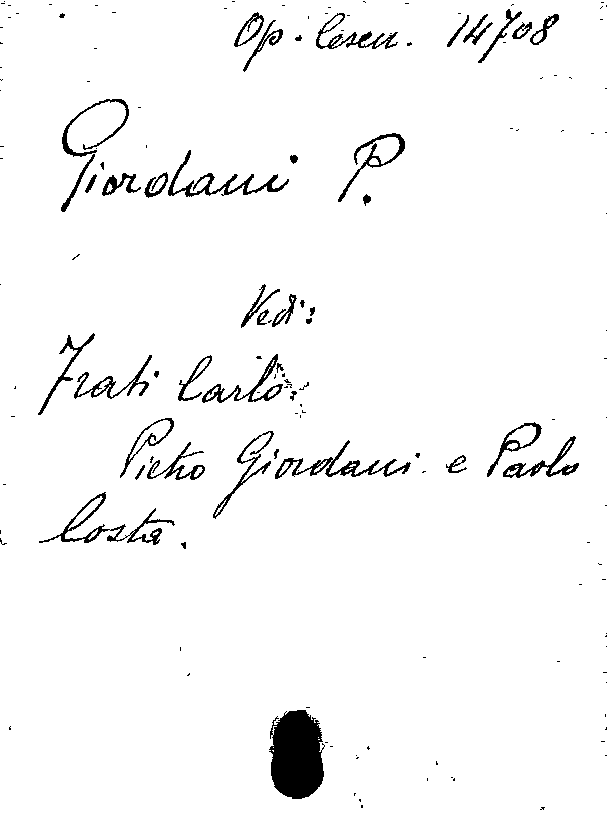 Op. Cesen. 14708
Giordani P.
Vedi:
Frati Carlo:
Pietro Giordani e Paolo
Costa.